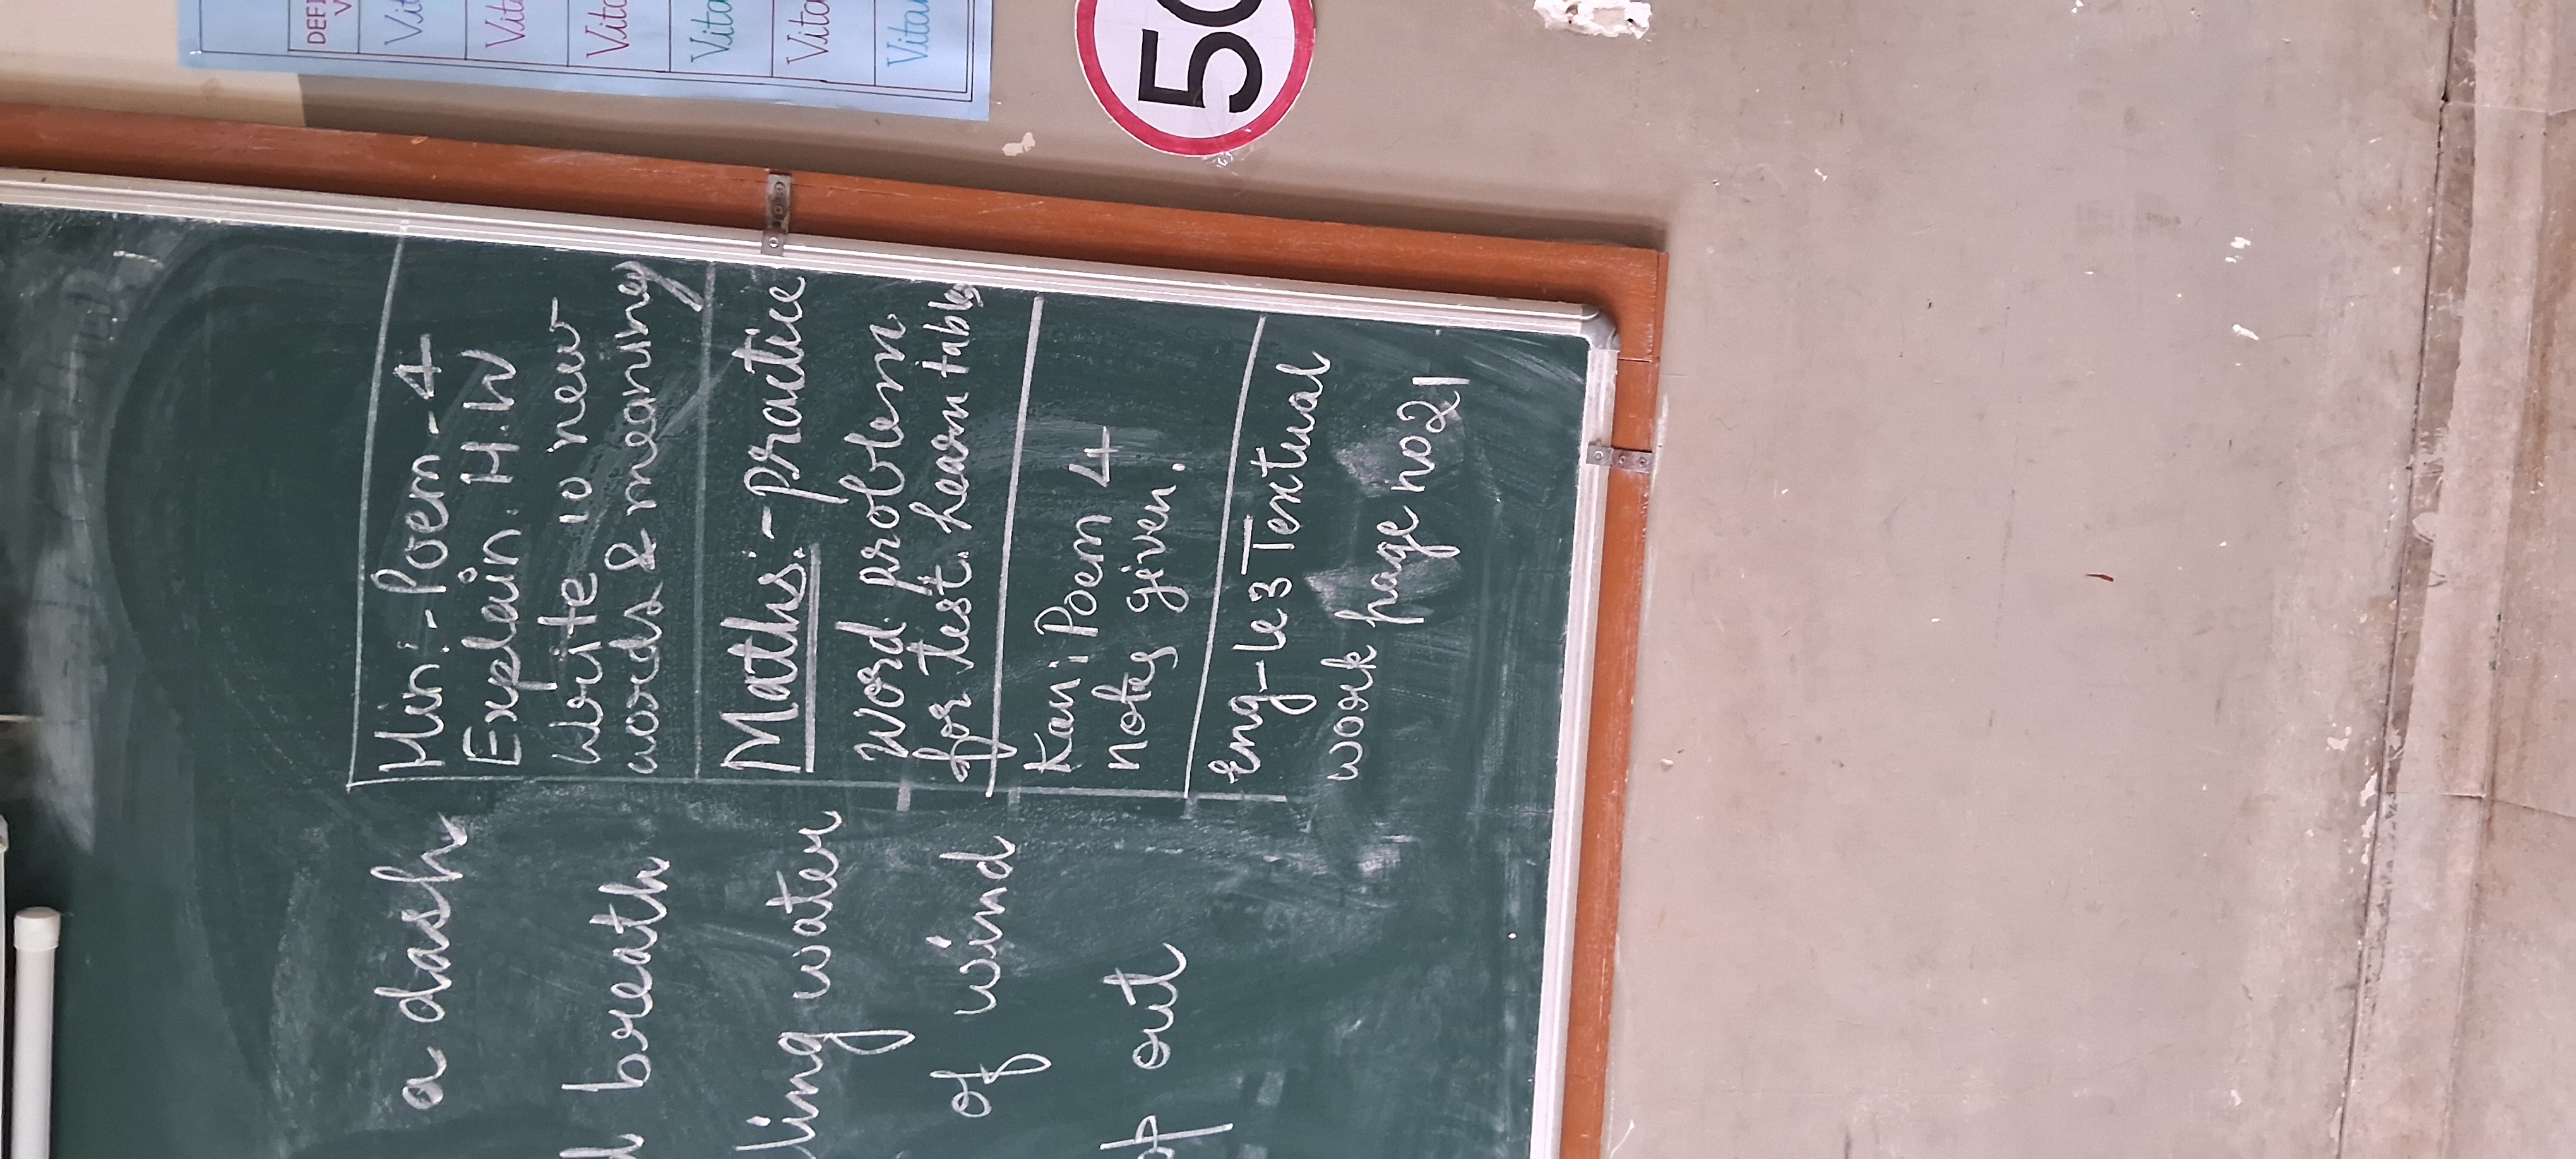 DEFI
V
Vit
Vita
Vita
Vita
Vita
Vita
50
Hin:-Poem-4
Explain. H.W
Write 10 new
words & meaning
Maths:-practice
word problem
for test. learn tables
Kan: Poem 4
notes given.
Eng-Le 3 Textual
work page no 21
a dash
d breath
ling water
of wind
out